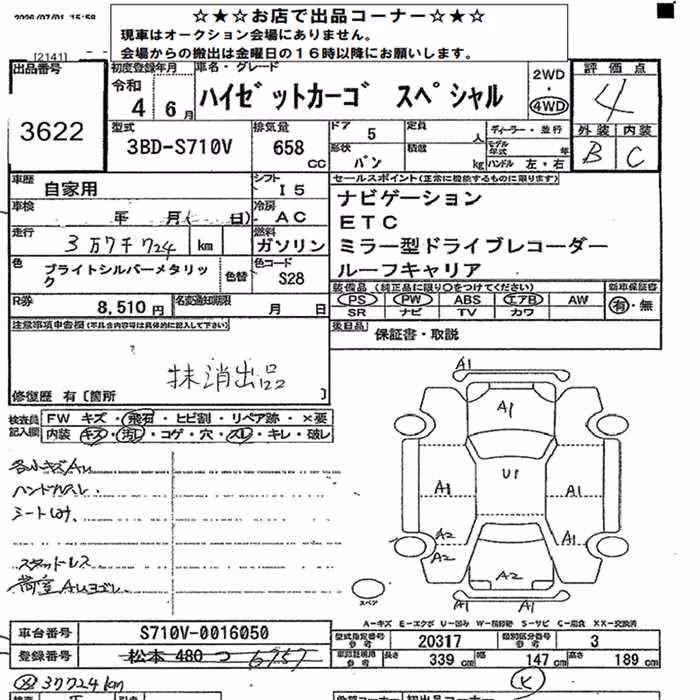 2026/07/01 15:58
☆★☆お店で出品コーナー☆★☆
現車はオークション会場にありません。
会場からの搬出は金曜日の16時以降にお願いします。
[2141]
出品番号
3622
初度登録年月
令和
4 6月
車名・グレード
ハイゼットカーゴ スペシャル
2WD
・
4WD
評価点
4
外装 内装
B C
型式
3BD-S710V
排気量
658
CC
ドア
5
形状
バン
定員
人
積載
kg
ディーラー・並行
モデル年式
年
ハンドル 左・右
車歴
自家用
シフト
I5
車検
年 月( 日)
冷房
AC
走行
3万7千724
km
燃料
ガソリン
色
ブライトシルバーメタリック
色替
色コード
S28
R券
8,510円
名変通知期限
月 日
セールスポイント(正常に機能するものに限ります)
ナビゲーション
ETC
ミラー型ドライブレコーダー
ルーフキャリア
装備品(純正品に限り○をつけてください)
PS PW ABS エアB AW
SR ナビ TV カワ
新車保証書
有・無
後日品
保証書・取説
注意事項申告欄(不具合内容等は具体的に記入して下さい)
抹消出品
修復歴 有〔箇所 〕
検査員記入欄
FW キズ・飛石・ヒビ割・リペア跡・×要
内装 キズ・汚れ・コゲ・穴・スレ・キレ・破レ
各小キズAu
ハンドルスレ
スタッドレス
荷室Auヨゴレ
A1
A1
U1
A1
A1
A2
A2
A1
A2
A1
A1
スペア
A-キズ E-エクボ U-凹み W-補修跡 S-サビ C-腐食 XX-交換済
車台番号
S710V-0016050
登録番号
松本 480 つ 6757
型式指定番号
参考
20317
類別区分番号
参考
3
車両証明用
参考
長さ
339 cm
幅
147 cm
高さ
189 cm
37724km
K